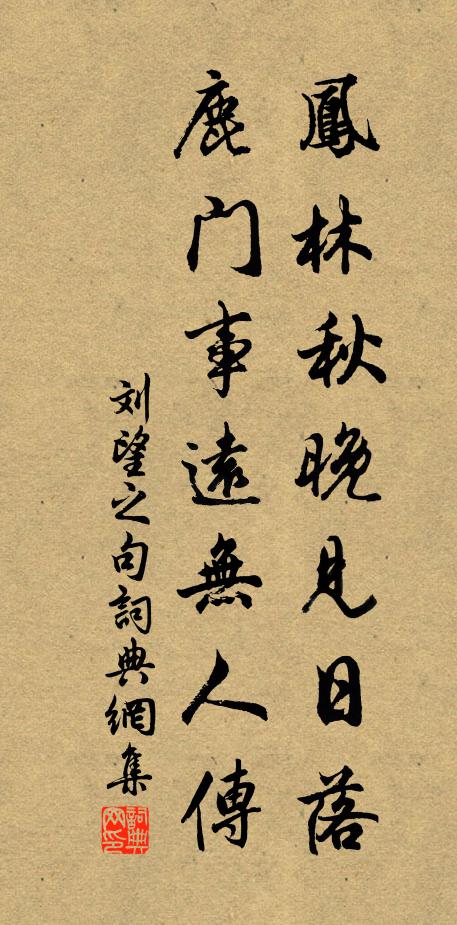 鳳林秋晚見日落
鹿门事遠無人傳
刘望之句詞典網集
詞典网印